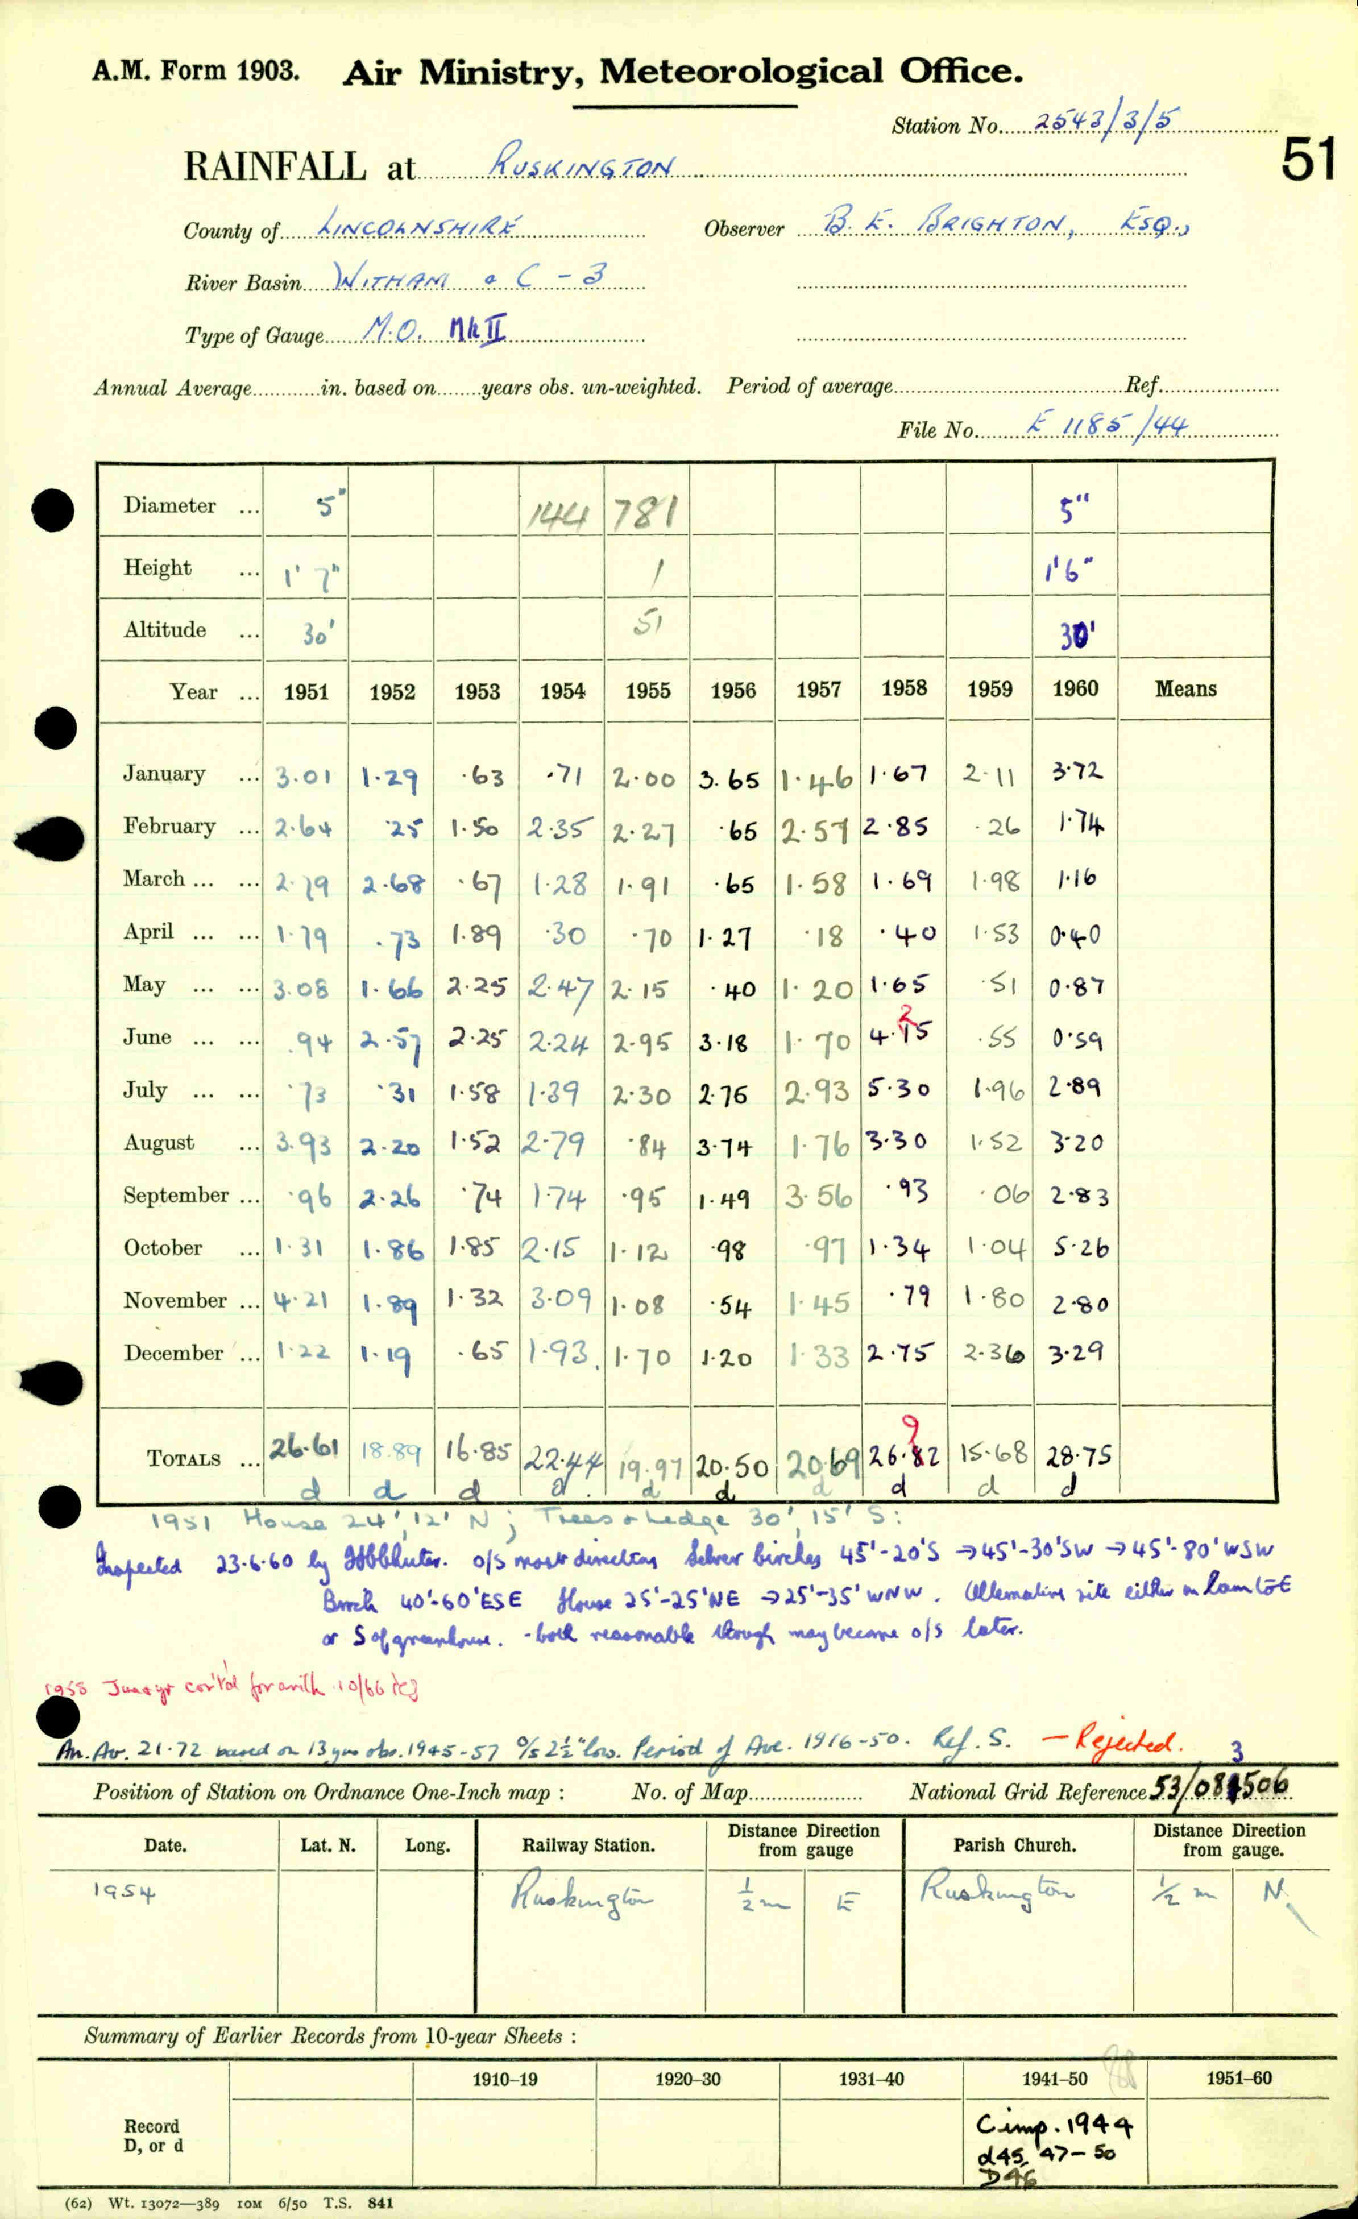 A.M. Form 1903. Air Ministry, Meteorological Office.
Station No. 2543/3/5
51
RAINFALL at RUSKINGTON
County of LINCOLNSHIRE Observer B. E. BRIGHTON, ESQ.,
River Basin WITHAM & C - 3
Type of Gauge M.O. Mk II
Annual Average in. based on years obs. un-weighted. Period of average Ref.
File No. E 1185/44
Diameter ... 5" 144 781 5"
Height ... 1' 7" 1 1'6"
Altitude ... 30' 51 30'
Year ... 1951 1952 1953 1954 1955 1956 1957 1958 1959 1960 Means
January ... 3.01 1.29 .63 .71 2.00 3.65 1.46 1.67 2.11 3.72
February ... 2.64 .25 1.50 2.35 2.27 .65 2.57 2.85 .26 1.74
March ... ... 2.79 2.68 .67 1.28 1.91 .65 1.58 1.69 1.98 1.16
April ... ... 1.79 .73 1.89 .30 .70 1.27 .18 .40 1.53 0.40
May ... ... 3.08 1.66 2.25 2.47 2.15 .40 1.20 1.65 .51 0.87
2
June ... ... .94 2.57 2.25 2.24 2.95 3.18 1.70 4.15 .55 0.59
July ... ... .73 .31 1.58 1.39 2.30 2.76 2.93 5.30 1.96 2.89
August ... 3.93 2.20 1.52 2.79 .84 3.74 1.76 3.30 1.52 3.20
September ... .96 2.26 .74 1.74 .95 1.49 3.56 .93 .06 2.83
October ... 1.31 1.86 1.85 2.15 1.12 .98 .97 1.34 1.04 5.26
November ... 4.21 1.89 1.32 3.09 1.08 .54 1.45 .79 1.80 2.80
December ... 1.22 1.19 .65 1.93 1.70 1.20 1.33 2.75 2.36 3.29
9
TOTALS ... 26.61 18.89 16.85 22.44 19.97 20.50 20.69 26.82 15.68 28.75
d d d d d d d d d d
1951 House 24', 12' N; Trees & Hedge 30', 15' S:
Inspected 23.6.60 by o/s most directions Silver birches 45'-20'S → 45'-30'SW → 45'-80'WSW
Birch 40'-60'ESE House 25'-25'NE → 25'-35'WNW. Alternative site either on lawn to E
or S of greenhouse. - both reasonable though may become o/s later.
1958 June & yr cor'td for arith 10/66
An. Av. 21.72 based on 13 yrs obs. 1945-57 o/s 2½" low. Period of Ave. 1916-50. Ref. S. - Rejected.
3
Position of Station on Ordnance One-Inch map : No. of Map National Grid Reference 53/084506
Date. Lat. N. Long. Railway Station. Distance Direction from gauge Parish Church. Distance Direction from gauge.
1954 Ruskington ½ m E Ruskington ½ m N
Summary of Earlier Records from 10-year Sheets :
1910–19 1920–30 1931–40 1941–50 1951–60
Record
D, or d
Cimp. 1944
d45, 47-50
D46
(62) Wt. 13072—389 10M 6/50 T.S. 841